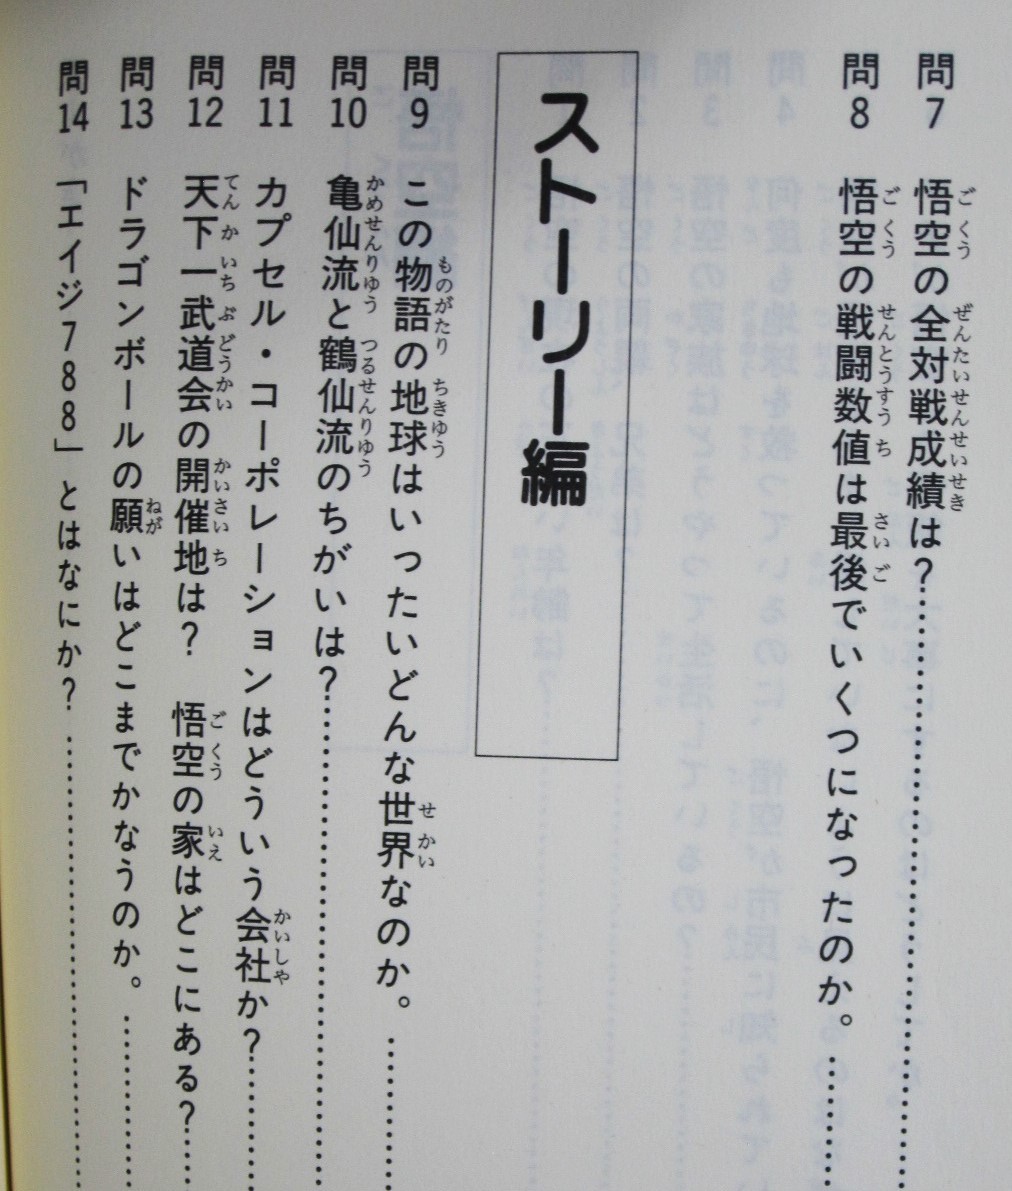 問7 悟空の全対戦成績は？
問8 悟空の戦闘数値は最後でいくつになったのか。
ストーリー編
問9 この物語の地球はいったいどんな世界なのか。
問10 亀仙流と鶴仙流のちがいは？
問11 カプセル・コーポレーションはどういう会社か？
問12 天下一武道会の開催地は？ 悟空の家はどこにある？
問13 ドラゴンボールの願いはどこまでかなうのか。
問14 「エイジ788」とはなにか？